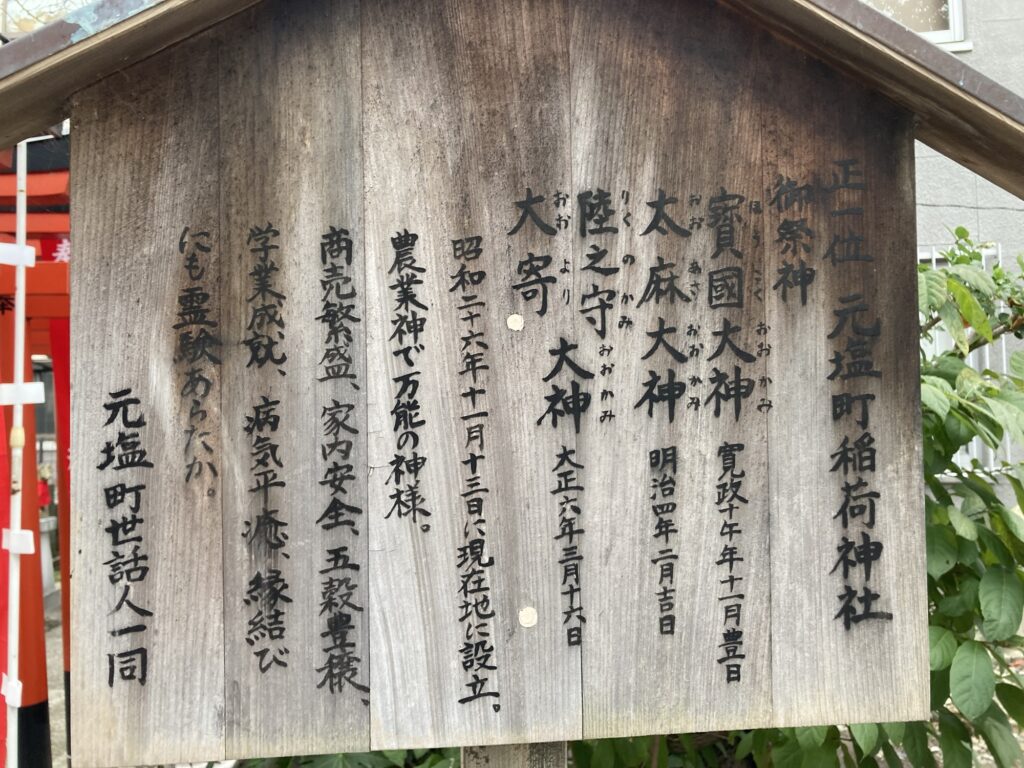 正一位 元塩町稲荷神社
御祭神
ほうこく おおかみ
寳國大神 寛政十午年十一月豊日
おおあさ おおかみ
太麻大神 明治四年二月吉日
りくのかみ おおかみ
陸之守
大神 大正六年三月十六日
おおより
大寄
昭和二十六年十一月十三日に現在地に設立。
農業神で万能の神様。
商売繁盛、家内安全、五穀豊穣、
学業成就、病気平癒、縁結び
にも霊験あらたか。
元塩町世話人一同